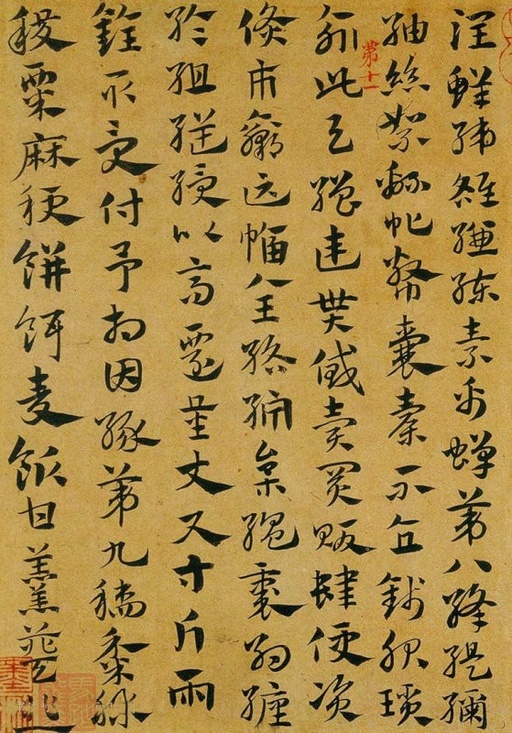 潤鮮綈雒縑練素帛蟬第八絳緹
紬絲絮綿帗幣囊橐不直錢服瑣
此繒連貰貸賣買販肆便資
第十一
市贏匹幅全綌枲縕裹約纏
組縌綬以高遷量丈尺寸斤兩
銓取受付予相因緣第九稻黍秫
稷粟麻秔餅餌麥飯甘羹葵